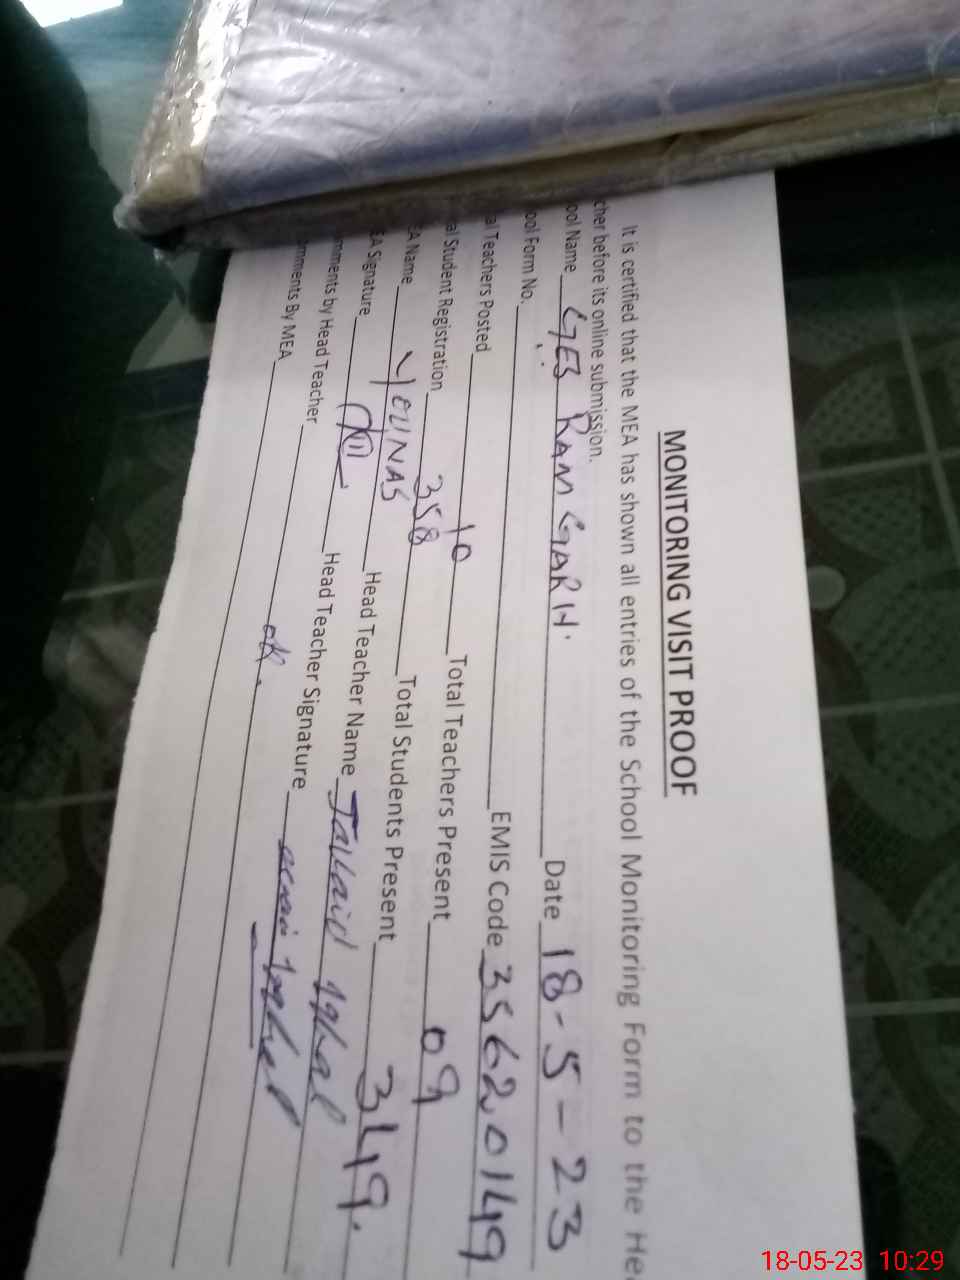 MONITORING VISIT PROOF
It is certified that the MEA has shown all entries of the School Monitoring Form to the Hea
cher before its online submission.
ool Name GES RAM GARH. Date 18-5-23
ool Form No. EMIS Code 35620149
al Teachers Posted 10 Total Teachers Present 09
al Student Registration 358 Total Students Present 349.
EA Name YOUNAS Head Teacher Name Javaid Iqbal
EA Signature Head Teacher Signature
mments by Head Teacher ok.
mments By MEA
18-05-23 10:29